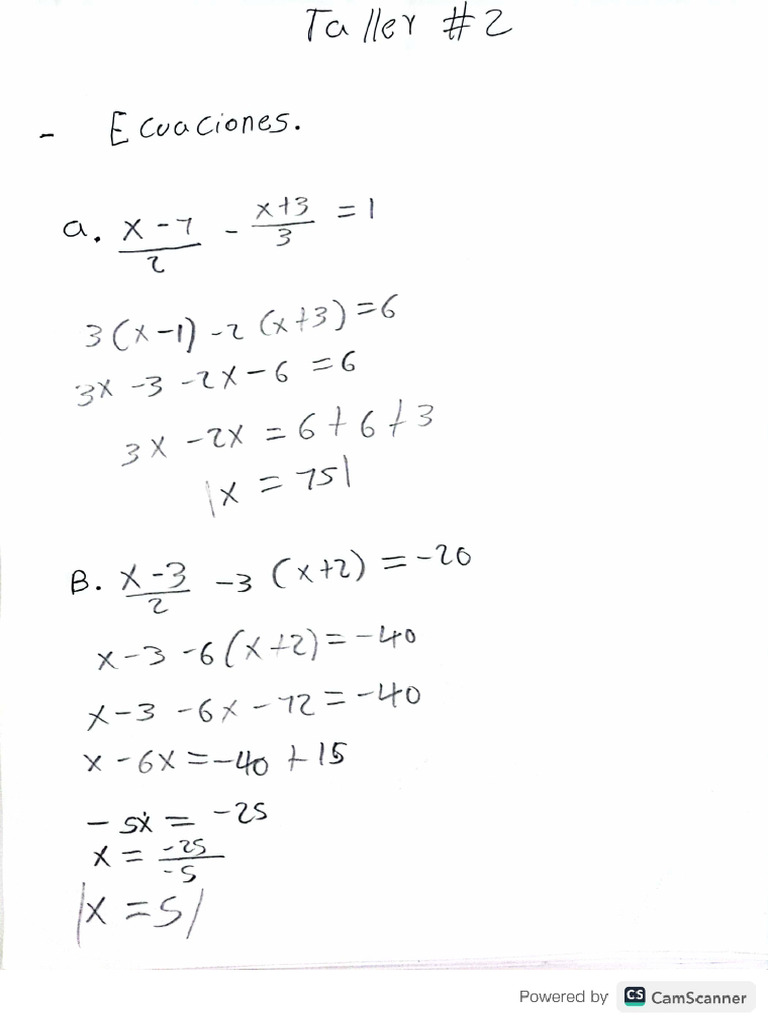 Taller #2
- Ecuaciones.
a. x-1/2 - x+3/3 = 1
3(x-1) -2 (x+3) = 6
3x -3 -2x -6 = 6
3x -2x = 6+6+3
|x = 15|
B. x-3/2 -3 (x+2) = -20
x-3 -6(x+2) = -40
x-3 -6x -12 = -40
x -6x = -40 +15
-5x = -25
x = -25/-5
|x = 5|
Powered by CS CamScanner